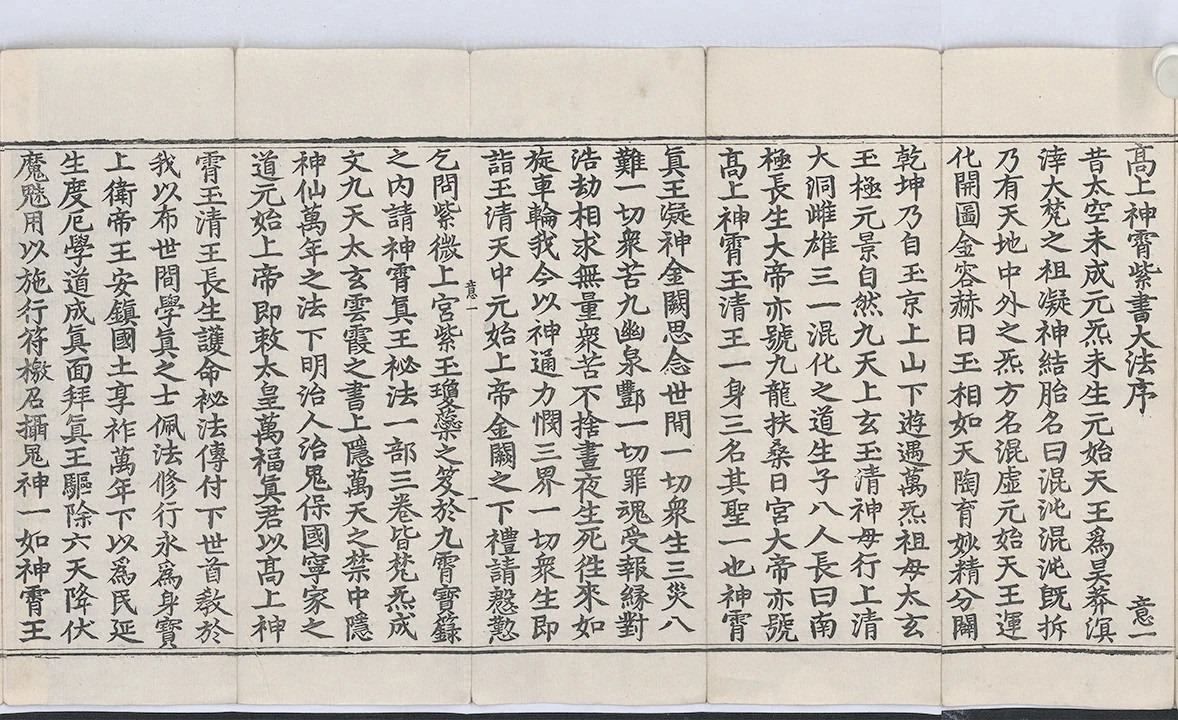 高上神霄紫書大法序　意一
昔太空未成元炁未生元始天王爲昊莽溟
涬大梵之祖凝神結胎名曰混沌混沌旣拆
乃有天地中外之炁方名混虛元始天王運
化開圖金容赫日玉相如天陶育妙精分闢
乾坤乃自玉京上山下遊遇萬炁祖母太玄
玉極元景自然九天上玄玉清神母行上清
大洞雌雄三一混化之道生子八人長曰南
極長生大帝亦號九龍扶桑日宮大帝亦號
高上神霄玉清王一身三名其聖一也神霄
眞王凝神金闕思念世間一切衆生三災八
難一切衆苦九幽泉酆一切罪魂受報緣對
浩劫相求無量衆苦不捨晝夜生死往來如
旋車輪我今以神通力憫三界一切衆生即
詣玉清天中元始上帝金闕之下禮請懇懃
意一
一
乞問紫微上宮紫玉瓊蘂之笈於九霄寶籙
之内請神霄眞王祕法一部三卷皆梵炁成
文九天太玄雲霞之書上隱萬天之禁中隱
神仙萬年之法下明治人治鬼保國寧家之
道元始上帝即敕太皇萬福眞君以高上神
霄玉清王長生護命祕法傳付下世首教於
我以布世間學眞之士佩法修行永爲身寶
上衛帝王安鎮國土享祚萬年下以爲民延
生度厄學道成眞面拜眞王驅除六天降伏
魔魅用以施行符檄召攝鬼神一如神霄王